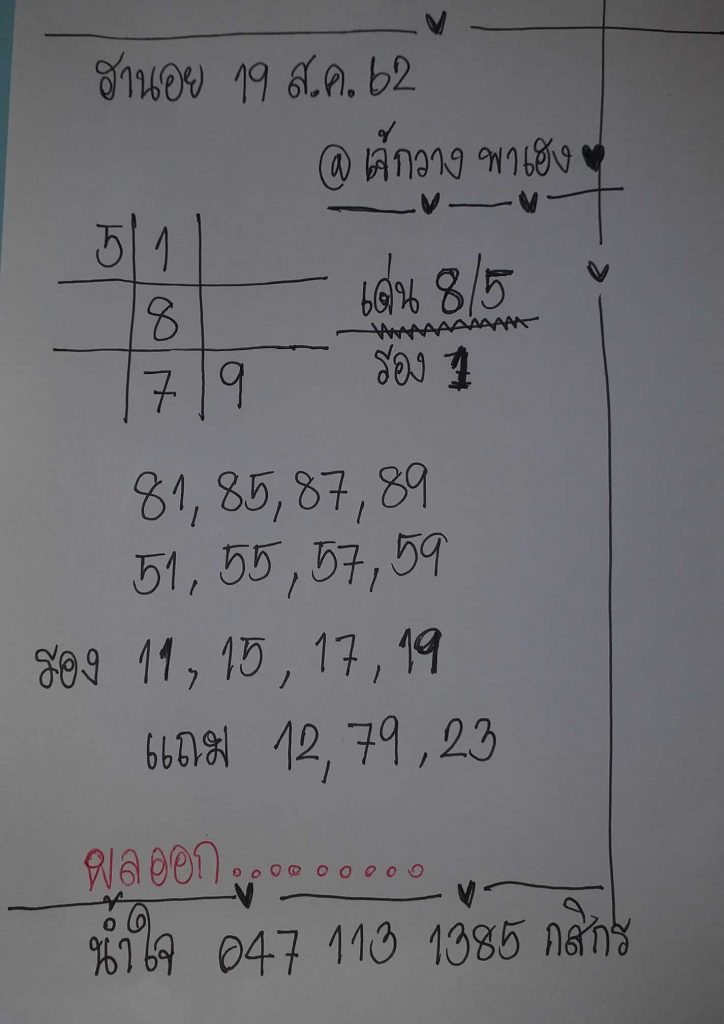 ฮานอย 19 ส.ค. 62
@ เจ้กวาง พาเฮง
5 1
8
7 9
เด่น 8/5
รอง 1
81, 85, 87, 89
51, 55, 57, 59
รอง 11, 15, 17, 19
แถม 12, 79, 23
ผลออก.........
น้ำใจ 047 113 1385 กสิกร